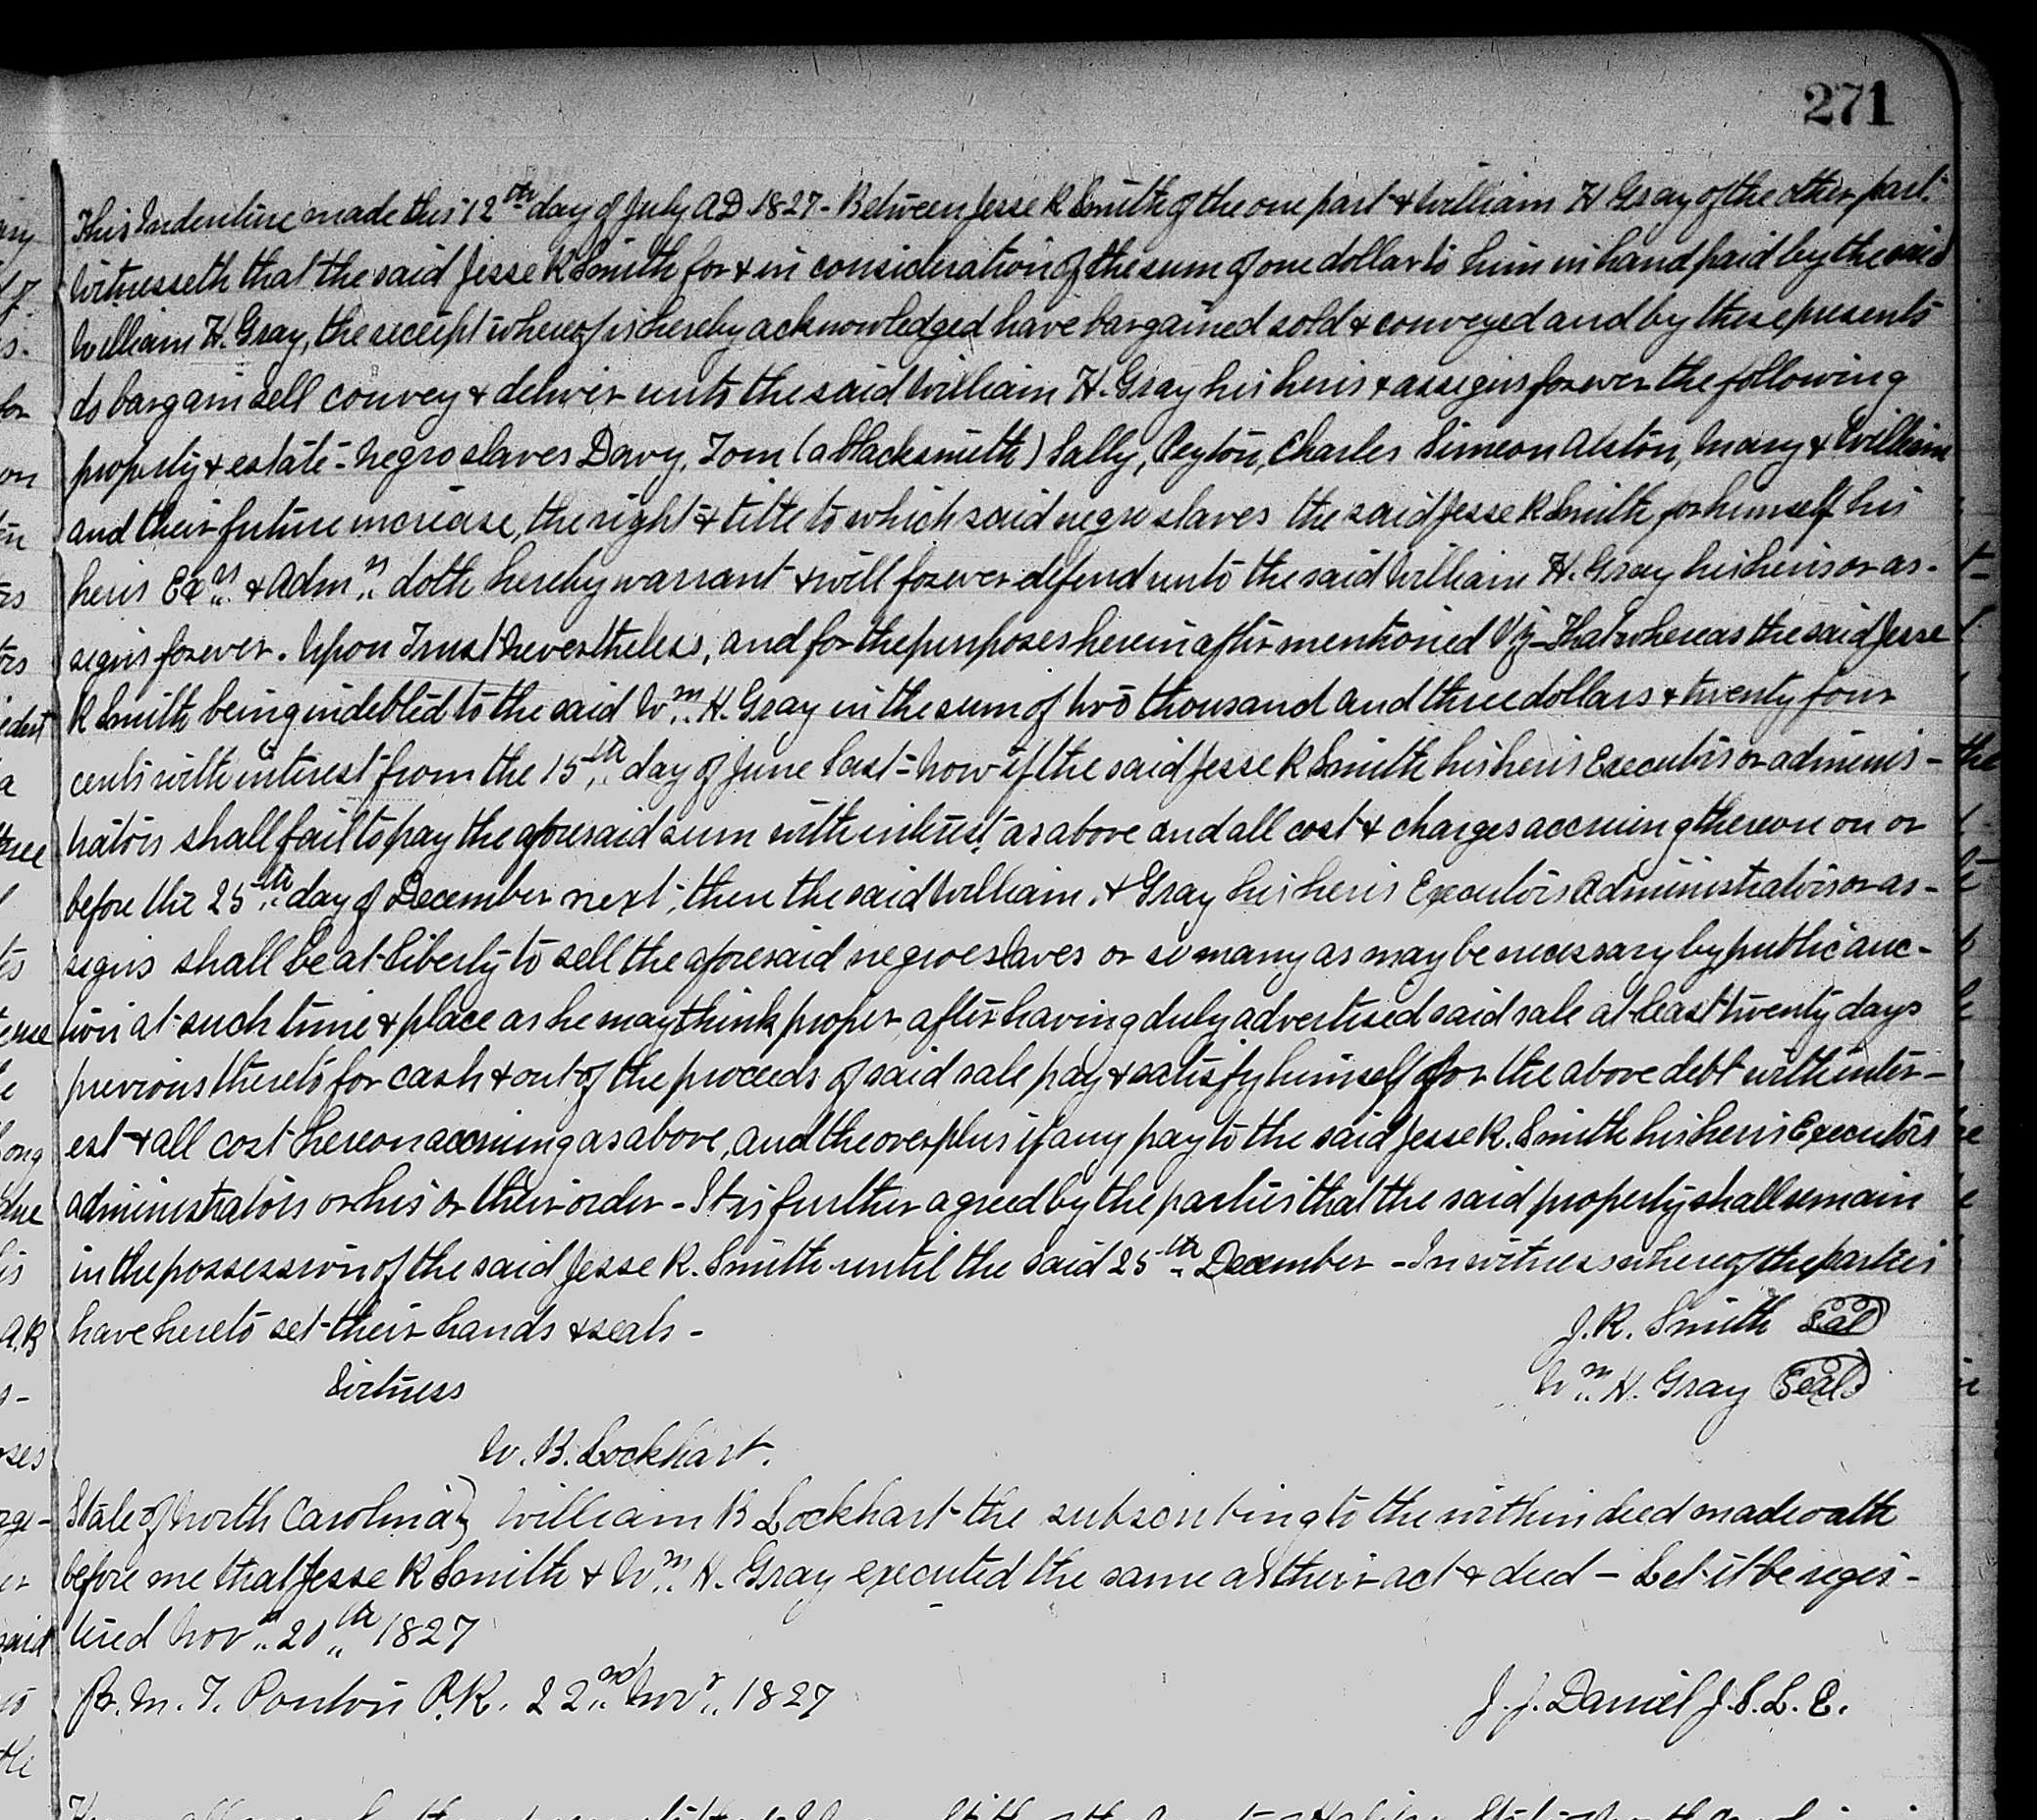 271
This Indenture made this 12th day of July AD. 1827 - Between Jesse R Smith of the one part & William H Gray of the other part.
Witnesseth that the said Jesse R Smith for & in consideration of the sum of one dollar to him in hand paid by the said
William H. Gray, the receipt whereof is hereby acknowledged have bargained sold & conveyed and by these presents
do bargain sell convey & deliver unto the said William H. Gray his heirs & assigns forever the following
property & estate - Negro slaves Davy, Tom (a blacksmith) Sally, Peyton, Charles Simeon Alston, Mary & William
and their future increase, the right & title to which said negro slaves the said Jesse R Smith for himself his
heirs Exrs & Admrs doth hereby warrant & will forever defend unto the said William H. Gray his heirs or as-
signs forever. Upon Trust Nevertheless, and for the purposes herein after mentioned Viz - That whereas the said Jesse
R Smith being indebted to the said Wm H. Gray in the sum of two thousand and three dollars & twenty four
cents with interest from the 15th day of June last - now if the said Jesse R Smith his heirs Executors or adminis-
trators shall fail to pay the aforesaid sum with interest as above and all cost & charges accruing thereon on or
before the 25th day of December next, then the said William. & Gray his heirs Executors Administrators or as-
signs shall be at liberty to sell the aforesaid negroe slaves or so many as may be necessary by public auc-
tion at such time & place as he may think proper after having duly advertised said sale at least twenty days
previous thereto for cash & out of the proceeds of said sale pay & satisfy himself for the above debt with inter-
est & all cost hereon accruing as above, and the overplus if any pay to the said Jesse R. Smith his heirs Executors
administrators or his or their order - It is further agreed by the parties that the said property shall remain
in the possession of the said Jesse R. Smith until the said 25th December - In witness whereof the parties
have hereto set their hands & seals -
J. R. Smith Seal
Witness
Wm H. Gray Seal
W. B. Lockhart.
State of North Carolina} William B Lockhart the subscribing to the within deed made oath
before me that Jesse R Smith & Wm H. Gray executed the same as their act & deed - Let it be regis-
tered Nov 20th 1827
Pr. M. T. Ponton P.R. 22nd Novr 1827
J. J. Daniel J. S. L. E.